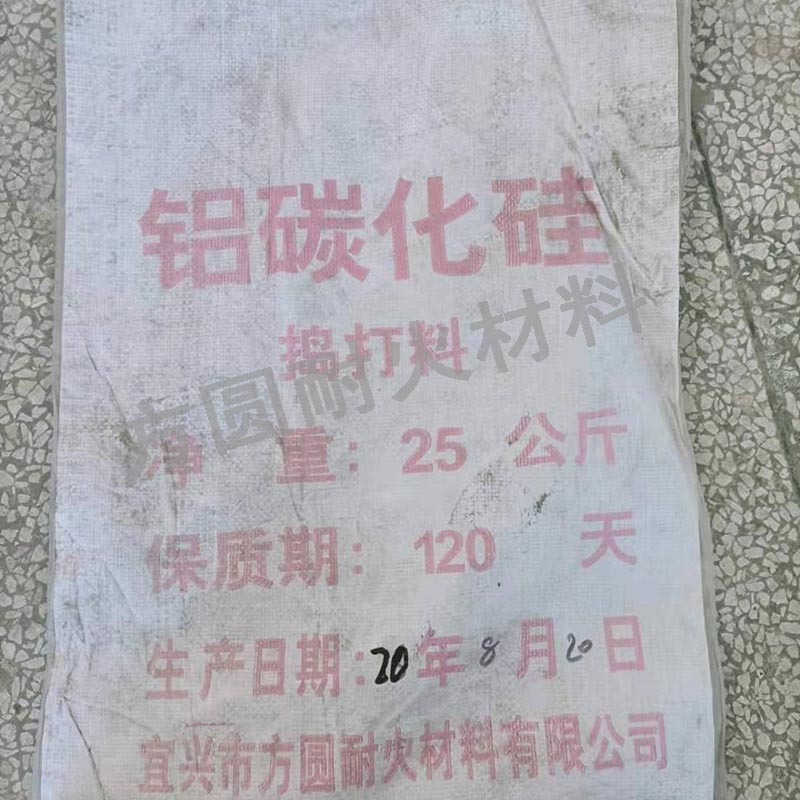 铝碳化硅
捣打料
方圆耐火材料
净 重：25 公斤
保质期：120 天
生产日期：20年8月20日
宜兴市方圆耐火材料有限公司